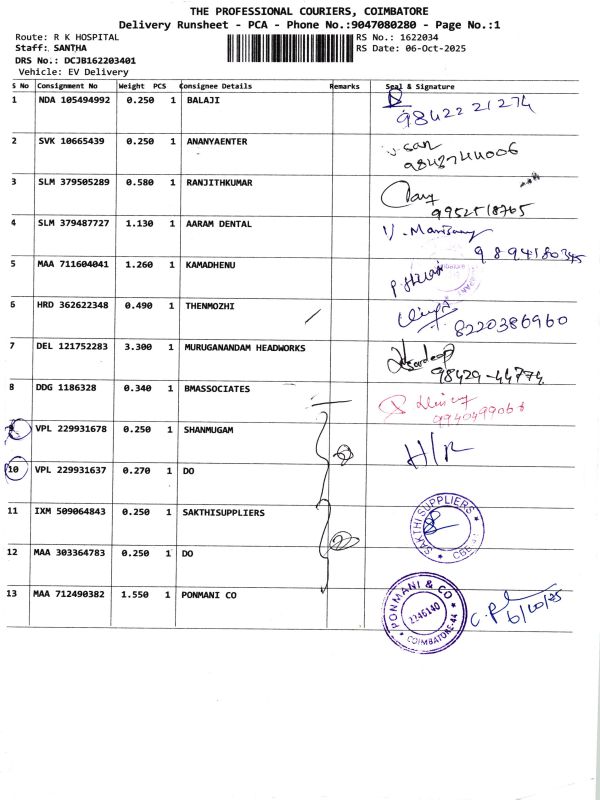 THE PROFESSIONAL COURIERS, COIMBATORE
Delivery Runsheet - PCA - Phone No.:9047080280 - Page No.:1
Route: R K HOSPITAL
RS No.: 1622034
Staff: SANTHA
RS Date: 06-Oct-2025
DRS No.: DCJB162203401
Vehicle: EV Delivery
S No Consignment No Weight PCS Consignee Details Remarks Seal & Signature
1 NDA 105494992 0.250 1 BALAJI
98422 21274
2 SVK 10665439 0.250 1 ANANYAENTER
9843744006
3 SLM 379505289 0.580 1 RANJITHKUMAR
9952518765
4 SLM 379487727 1.130 1 AARAM DENTAL
9894180345
5 MAA 711604041 1.260 1 KAMADHENU
6 HRD 362622348 0.490 1 THENMOZHI
8220386960
7 DEL 121752283 3.300 1 MURUGANANDAM HEADWORKS
98429-44774
8 DDG 1186328 0.340 1 BMASSOCIATES
9 VPL 229931678 0.250 1 SHANMUGAM
H/R
10 VPL 229931637 0.270 1 DO
11 IXM 509064843 0.250 1 SAKTHISUPPLIERS
SAKTHI SUPPLIERS
12 MAA 303364783 0.250 1 DO
13 MAA 712490382 1.550 1 PONMANI CO
PONMANI & CO
2246140
COIMBATORE-44
6/10/25